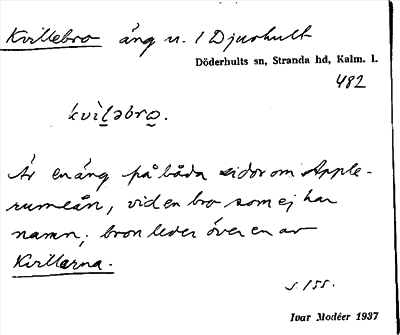 Kvillebro äng u. 1 Djurhult
Döderhults sn, Stranda hd, Kalm. l.
482
kvìlǝbro.
Är en äng på båda sidor om Apple-
rumeån, vid en bro som ej har
namn; bron leder över en av
Kvillarna.
s. 155.
Ivar Modéer 1937